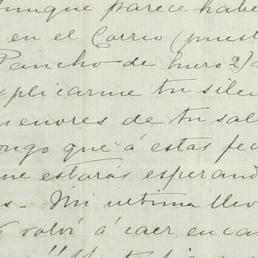 unque parece habe
en el Correo (puest
Pancho de
explicarme tu sile
menores de tu sal
ongo que á estas fec
me estarás esperand
s. Mi ultima llev
volví á caer en ca